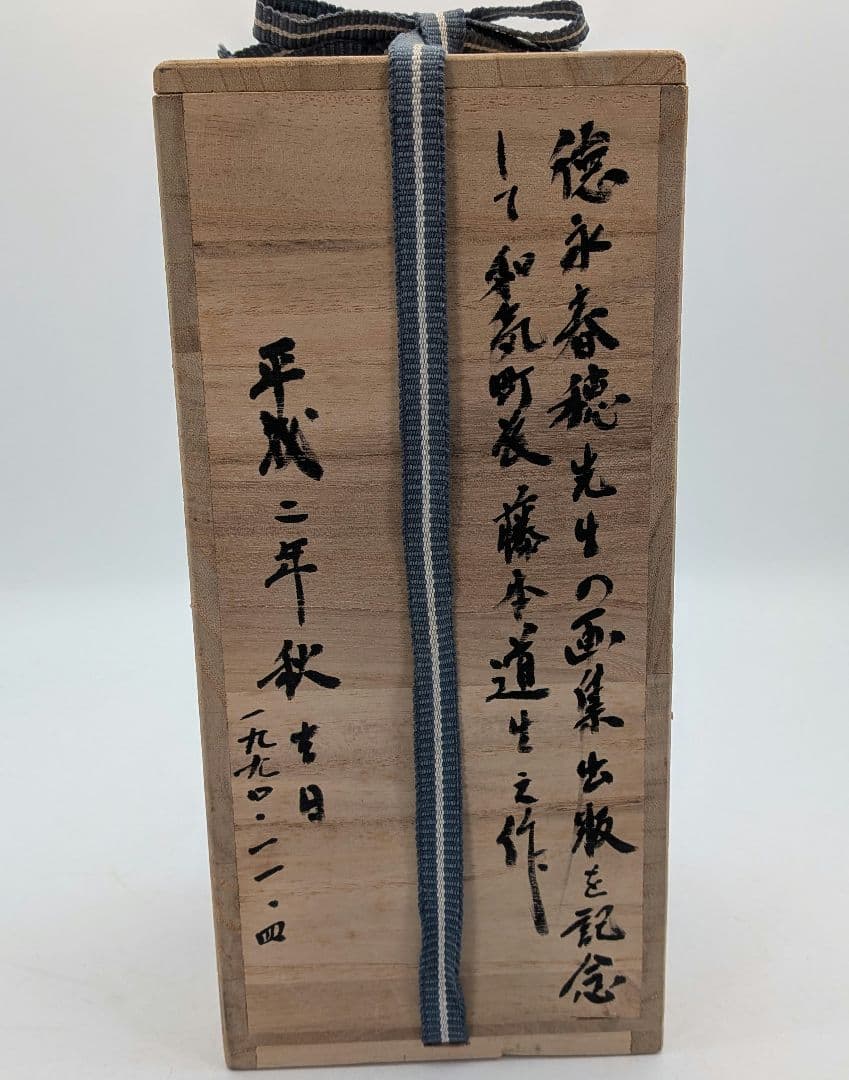 徳永春穂先生の画集出版を記念
して 和気町長 藤本道生之作
平成二年 秋 吉日
一九九〇・一一・四